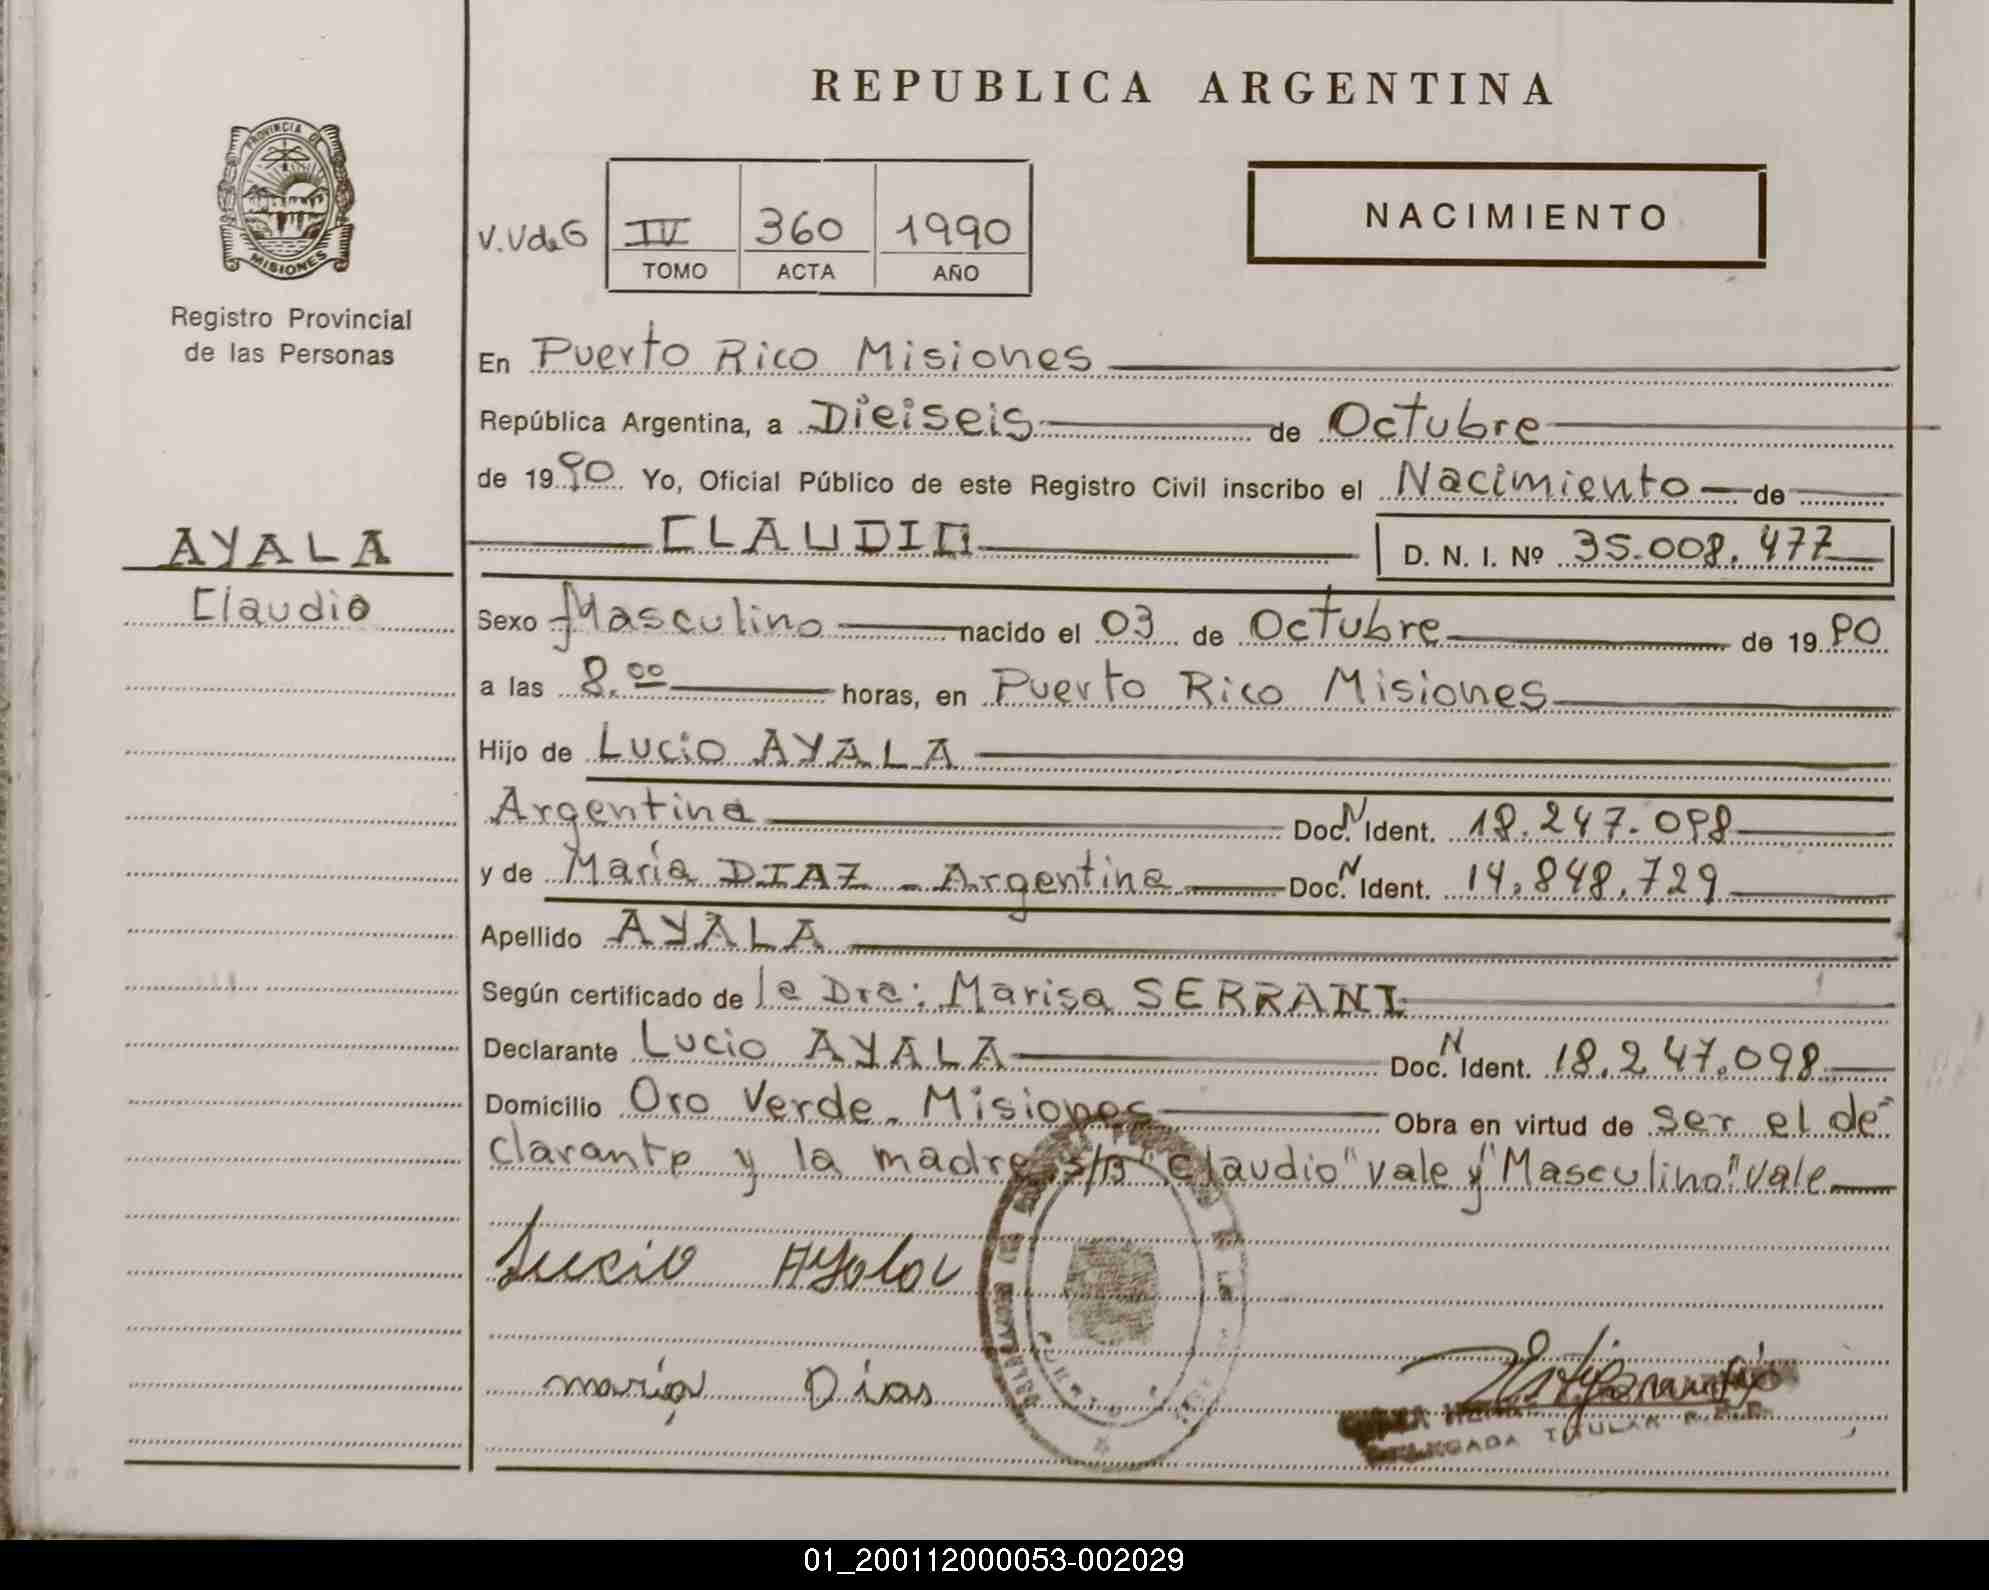 REPUBLICA ARGENTINA
PROVINCIA DE
MISIONES
Registro Provincial
de las Personas
V.VdeG
IV 360 1990
TOMO ACTA AÑO
NACIMIENTO
En Puerto Rico Misiones
República Argentina, a Dieiseis de Octubre
de 1990 Yo, Oficial Público de este Registro Civil inscribo el Nacimiento de
AYALA
Claudio
CLAUDIO D. N. I. Nº 35.008.477
Sexo Masculino nacido el 03 de Octubre de 1990
a las 8.00 horas, en Puerto Rico Misiones
Hijo de Lucio AYALA
Argentina Doc. N Ident. 18.247.098
y de María DIAZ - Argentina Doc. N Ident. 14.848.729
Apellido AYALA
Según certificado de la Dra: Marisa SERRANI
Declarante Lucio AYALA Doc. N Ident. 18.247.098
Domicilio Oro Verde - Misiones Obra en virtud de ser el de-
clarante y la madre s/B "Claudio" vale y "Masculino" vale
Lucio Ayala
maria Dias
DELEGADA TITULAR R.P.P.
01_200112000053-002029